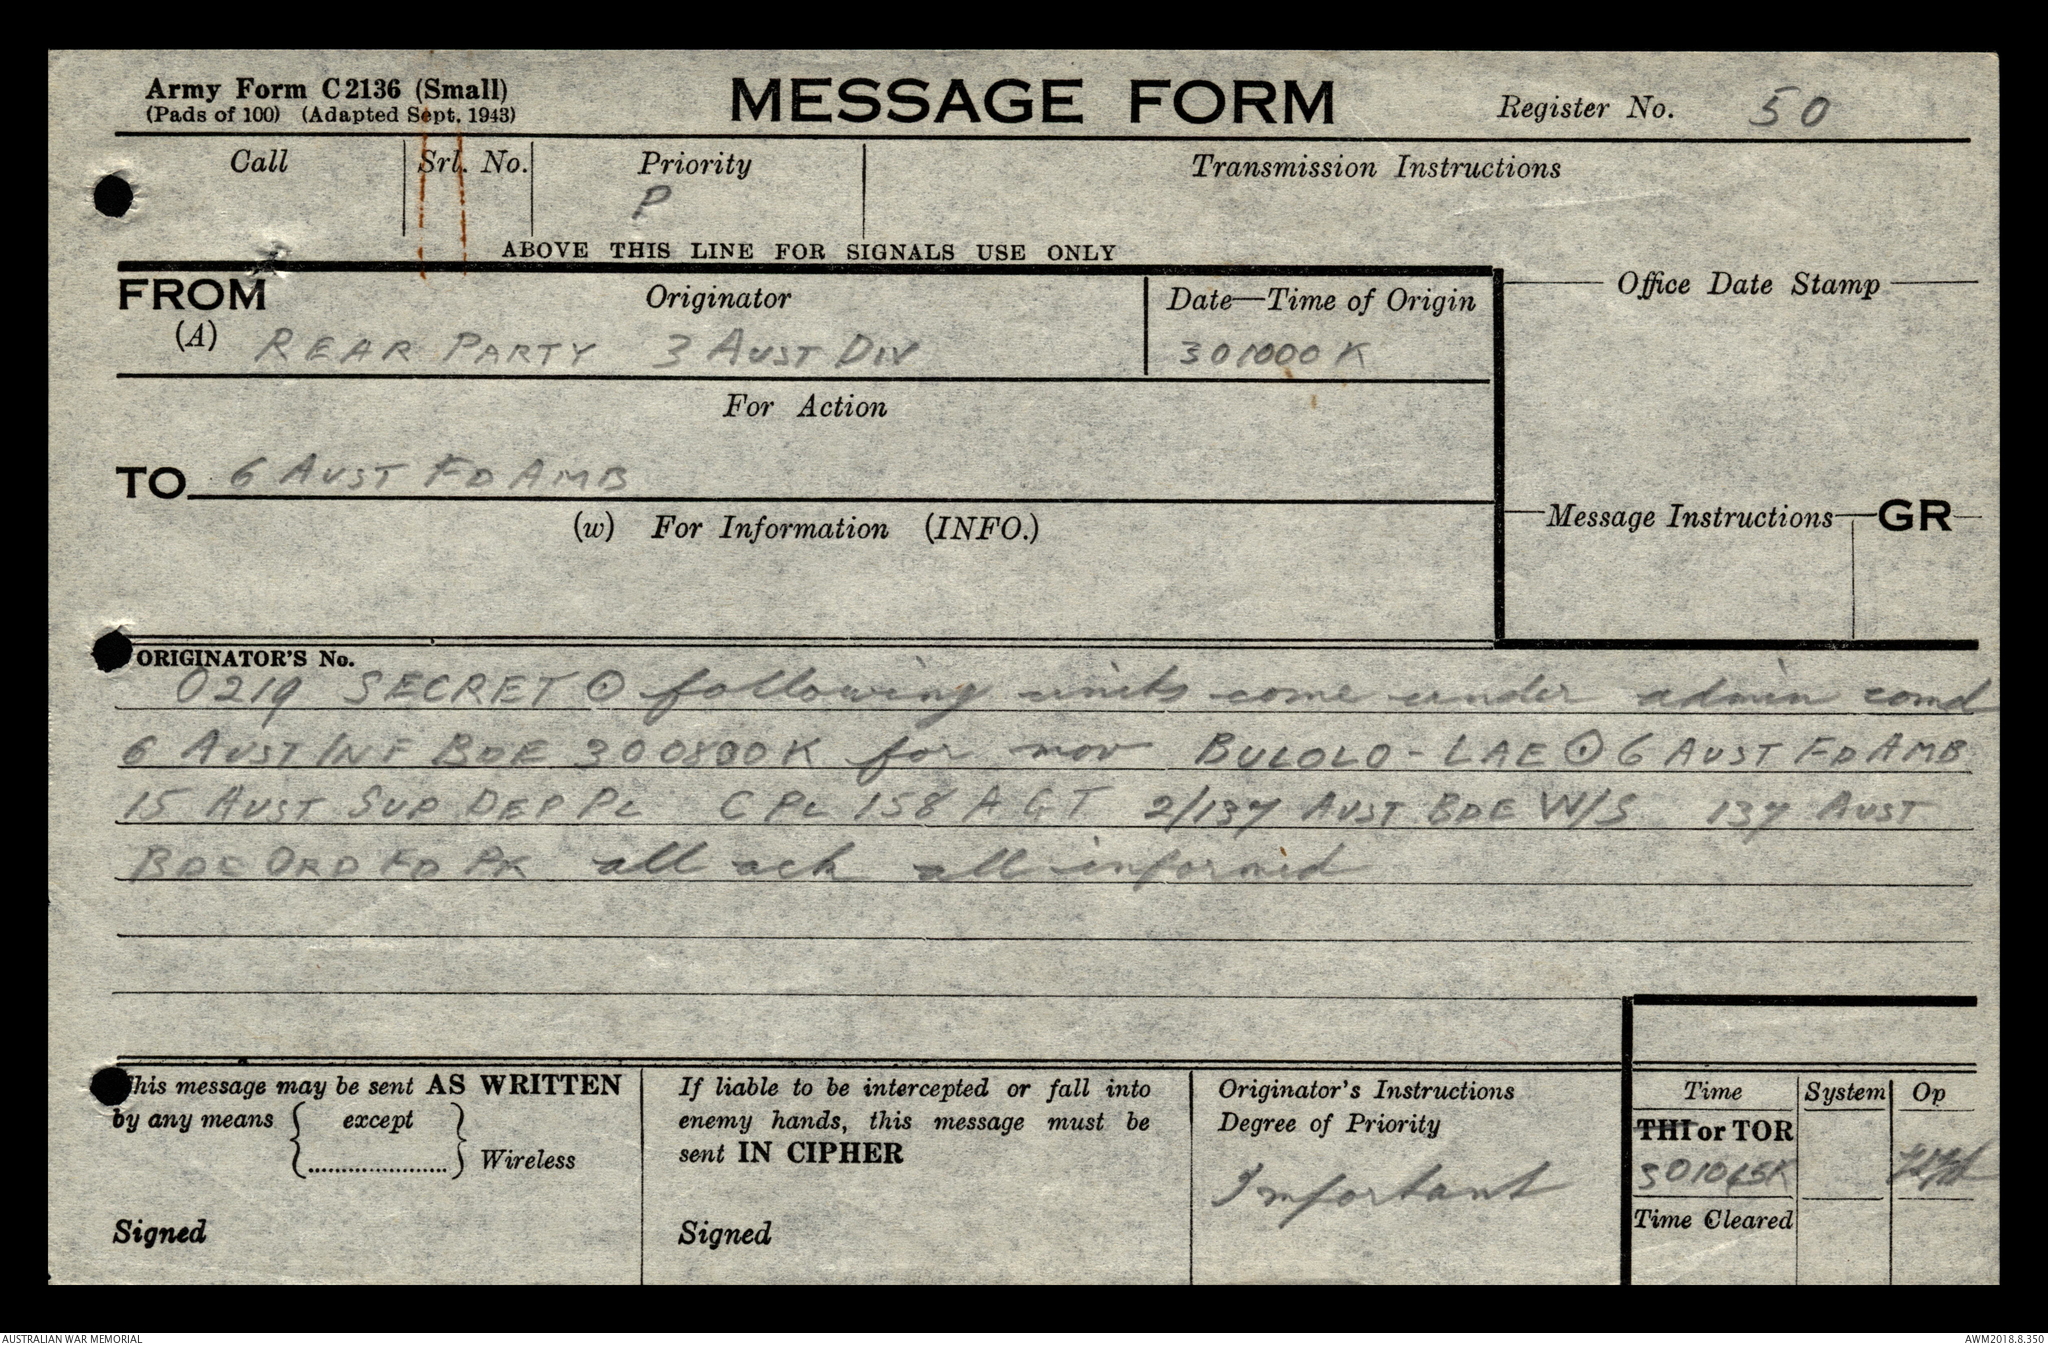 Army Form C2136 (Small)
(Pads of 100) (Adapted Sept. 1943)
MESSAGE FORM
Register No. 50
Call
Srl. No.
Priority
P
Transmission Instructions
ABOVE THIS LINE FOR SIGNALS USE ONLY
FROM
(A)
Originator
REAR PARTY 3 AUST DIV
Date—Time of Origin
301000K
Office Date Stamp
For Action
TO 6 AUST FD AMB
(w) For Information (INFO.)
Message Instructions
GR
ORIGINATOR'S No.
O219 SECRET ⊙ following units come under admin comd
6 AUST INF BDE 300800K for mov BULOLO - LAE ⊙ 6 AUST FD AMB
15 AUST SUP DEP PL C PL 158 A G T 2/137 AUST BDE W/S 137 AUST
BDE ORD FD PK all ack all informed
This message may be sent AS WRITTEN
by any means { except
......................} Wireless
Signed
If liable to be intercepted or fall into
enemy hands, this message must be
sent IN CIPHER
Signed
Originator's Instructions
Degree of Priority
Important
Time
System
Op
THI or TOR
Time Cleared
AUSTRALIAN WAR MEMORIAL
AWM2018.8.350